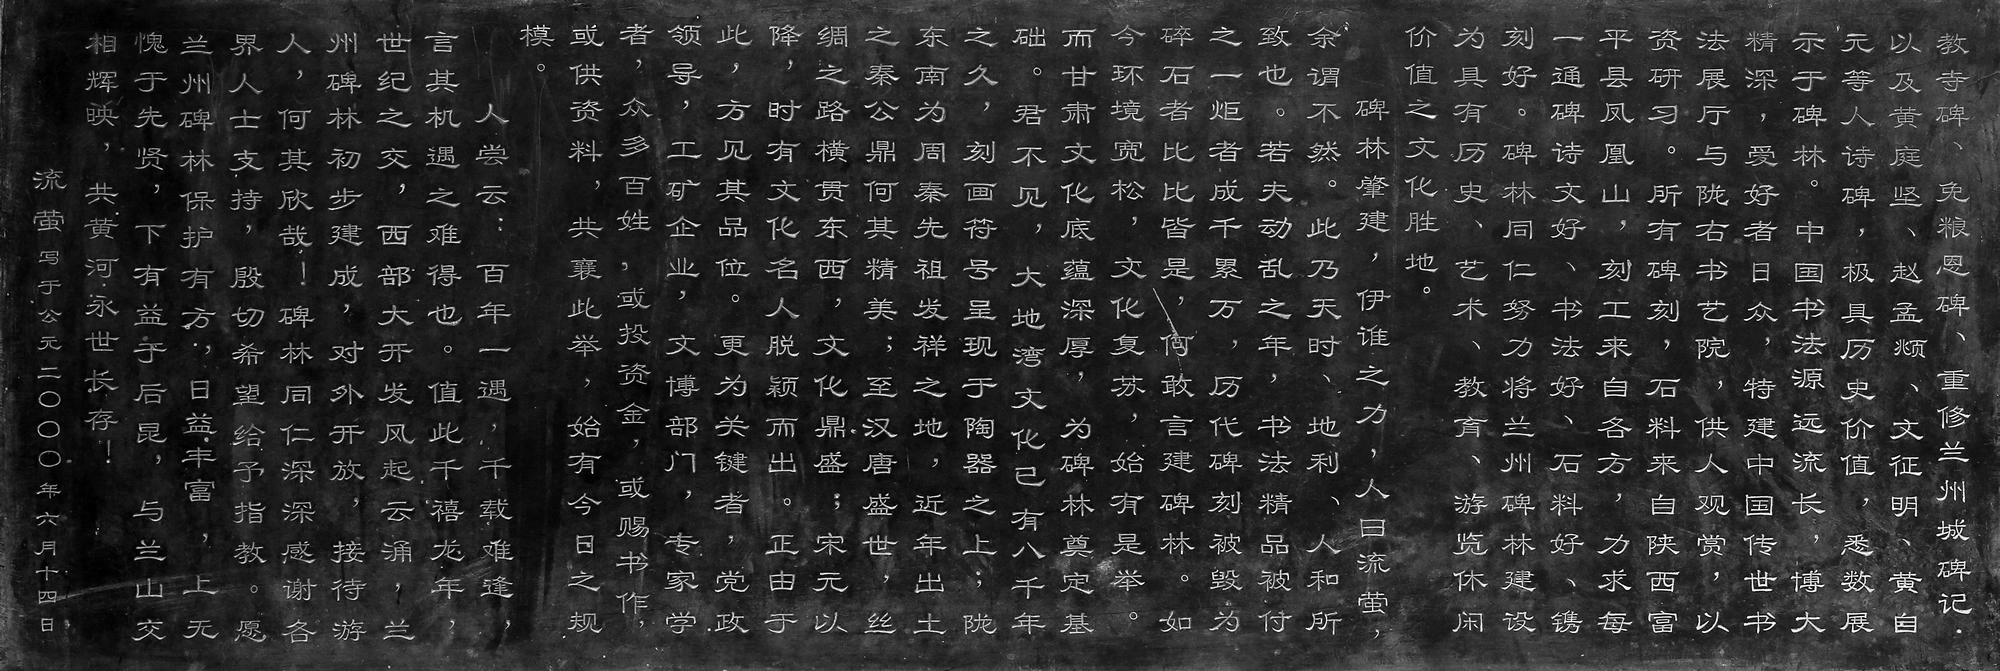 教寺碑、免粮恩碑、重修兰州城碑记.
以及黄庭坚、赵孟頫、文征明、黄自
元等人诗碑，极具历史价值，悉数展
示于碑林。中国书法源远流长，博大
精深，爱好者日众，特建中国传世书
法展厅与陇右书艺院，供人观赏，以
资研习。所有碑刻，石料来自陕西富
平县凤凰山，刻工来自各方，力求每
一通碑诗文好、书法好、石料好、镌
刻好。碑林同仁努力将兰州碑林建设
为具有历史、艺术、教育、游览休闲
价值之文化胜地。
碑林肇建，伊谁之力，人曰流萤，
余谓不然。此乃天时、地利、人和所
致也。若夫动乱之年，书法精品被付
之一炬者成千累万，历代碑刻被毁为
碎石者比比皆是，何敢言建碑林。如
今环境宽松，文化复苏，始有是举。
而甘肃文化底蕴深厚，为碑林奠定基
础。君不见，大地湾文化已有八千年
之久，刻画符号呈现于陶器之上；陇
东南为周秦先祖发祥之地，近年出土
之秦公鼎何其精美；至汉唐盛世，丝
绸之路横贯东西，文化鼎盛；宋元以
降，时有文化名人脱颖而出。正由于
此，方见其品位。更为关键者，党政
领导，工矿企业，文博部门，专家学
者，众多百姓，或投资金，或赐书作，
或供资料，共襄此举，始有今日之规
模。
人尝云：百年一遇，千载难逢，
言其机遇之难得也。值此千禧龙年，
世纪之交，西部大开发风起云涌，兰
州碑林初步建成，对外开放，接待游
人，何其欣哉！碑林同仁深深感谢各
界人士支持，殷切希望给予指教。愿
兰州碑林保护有方，日益丰富，上无
愧于先贤，下有益于后昆，与兰山交
相辉映，共黄河永世长存！
流萤写于公元二〇〇〇年六月十四日